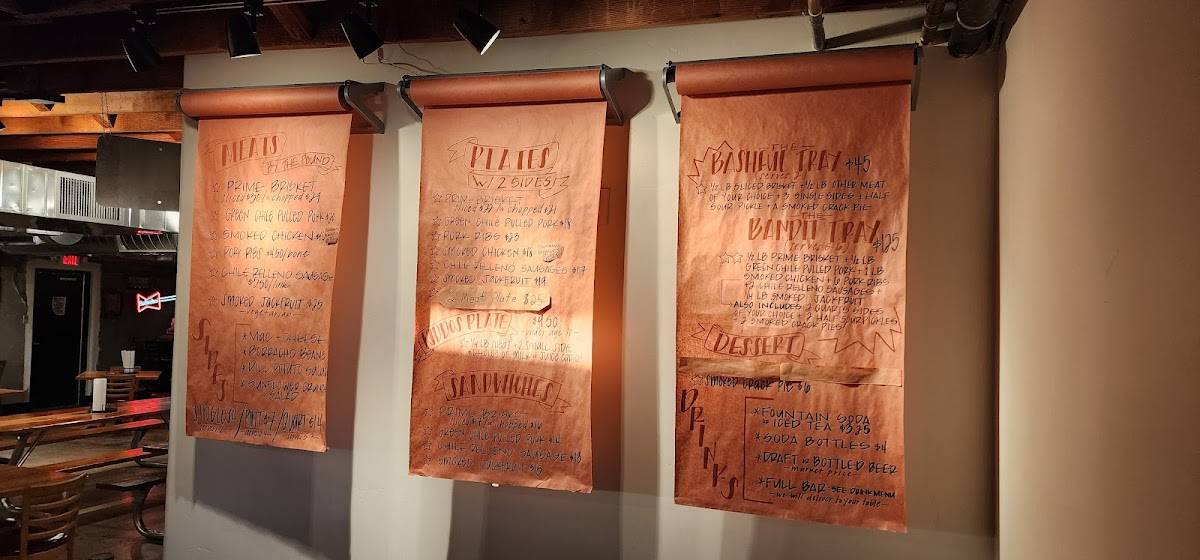 EXIT
MEATS
BY THE POUND
PRIME BRISKET
sliced $30 / chopped $29
GREEN CHILE PULLED PORK
SMOKED CHICKEN
PORK RIBS $4.50/bone
CHILE RELLENO SAUSAGE
SMOKED JACKFRUIT $25
-vegetarian-
SIDES
* MAC + CHEESE
* BORRACHO BEANS
* DILL POTATO SALAD
* SUNFLOWER CRUNCH
SALAD
PLATES
W/ 2 SIDES
PRIME BRISKET
sliced $22 / chopped $21
GREEN CHILE PULLED PORK $18
PORK RIBS $23
SMOKED CHICKEN $18
CHILE RELLENO SAUSAGES $17
SMOKED JACKFRUIT $19
2 Meat Plate $25
KIDDOS PLATE $9.50
-under age 10-
1/4 LB MEAT + 2 SMALL SIDES
+ CHOICE OF MILK OR JUICE
SANDWICHES
PRIME BRISKET
GREEN CHILE PULLED PORK $14
CHILE RELLENO SAUSAGE $13
SMOKED JACKFRUIT $15
THE
BASHFUL TRAY $45
1/2 LB SLICED BRISKET + 1/2 LB OTHER MEAT
OF YOUR CHOICE + 3 SINGLE SIDES + HALF
SOUR PICKLE + A SMOKED CRACK PIE
THE
BANDIT TRAY $125
1/2 LB PRIME BRISKET + 1/2 LB
GREEN CHILE PULLED PORK + 1 LB
SMOKED CHICKEN + 6 PORK RIBS
+ 2 CHILE RELLENO SAUSAGES +
1/4 LB SMOKED JACKFRUIT
ALSO INCLUDES: 2 QUARTS SIDES
OF YOUR CHOICE + 2 HALF SOUR PICKLES
+ 2 SMOKED CRACK PIES
DESSERT
SMOKED CRACK PIE $6
DRINKS
* FOUNTAIN SODA
or ICED TEA $3.25
* SODA BOTTLES $4
* DRAFT or BOTTLED BEER
-market price-
* FULL BAR - SEE DRINK MENU
-we will deliver to your table-